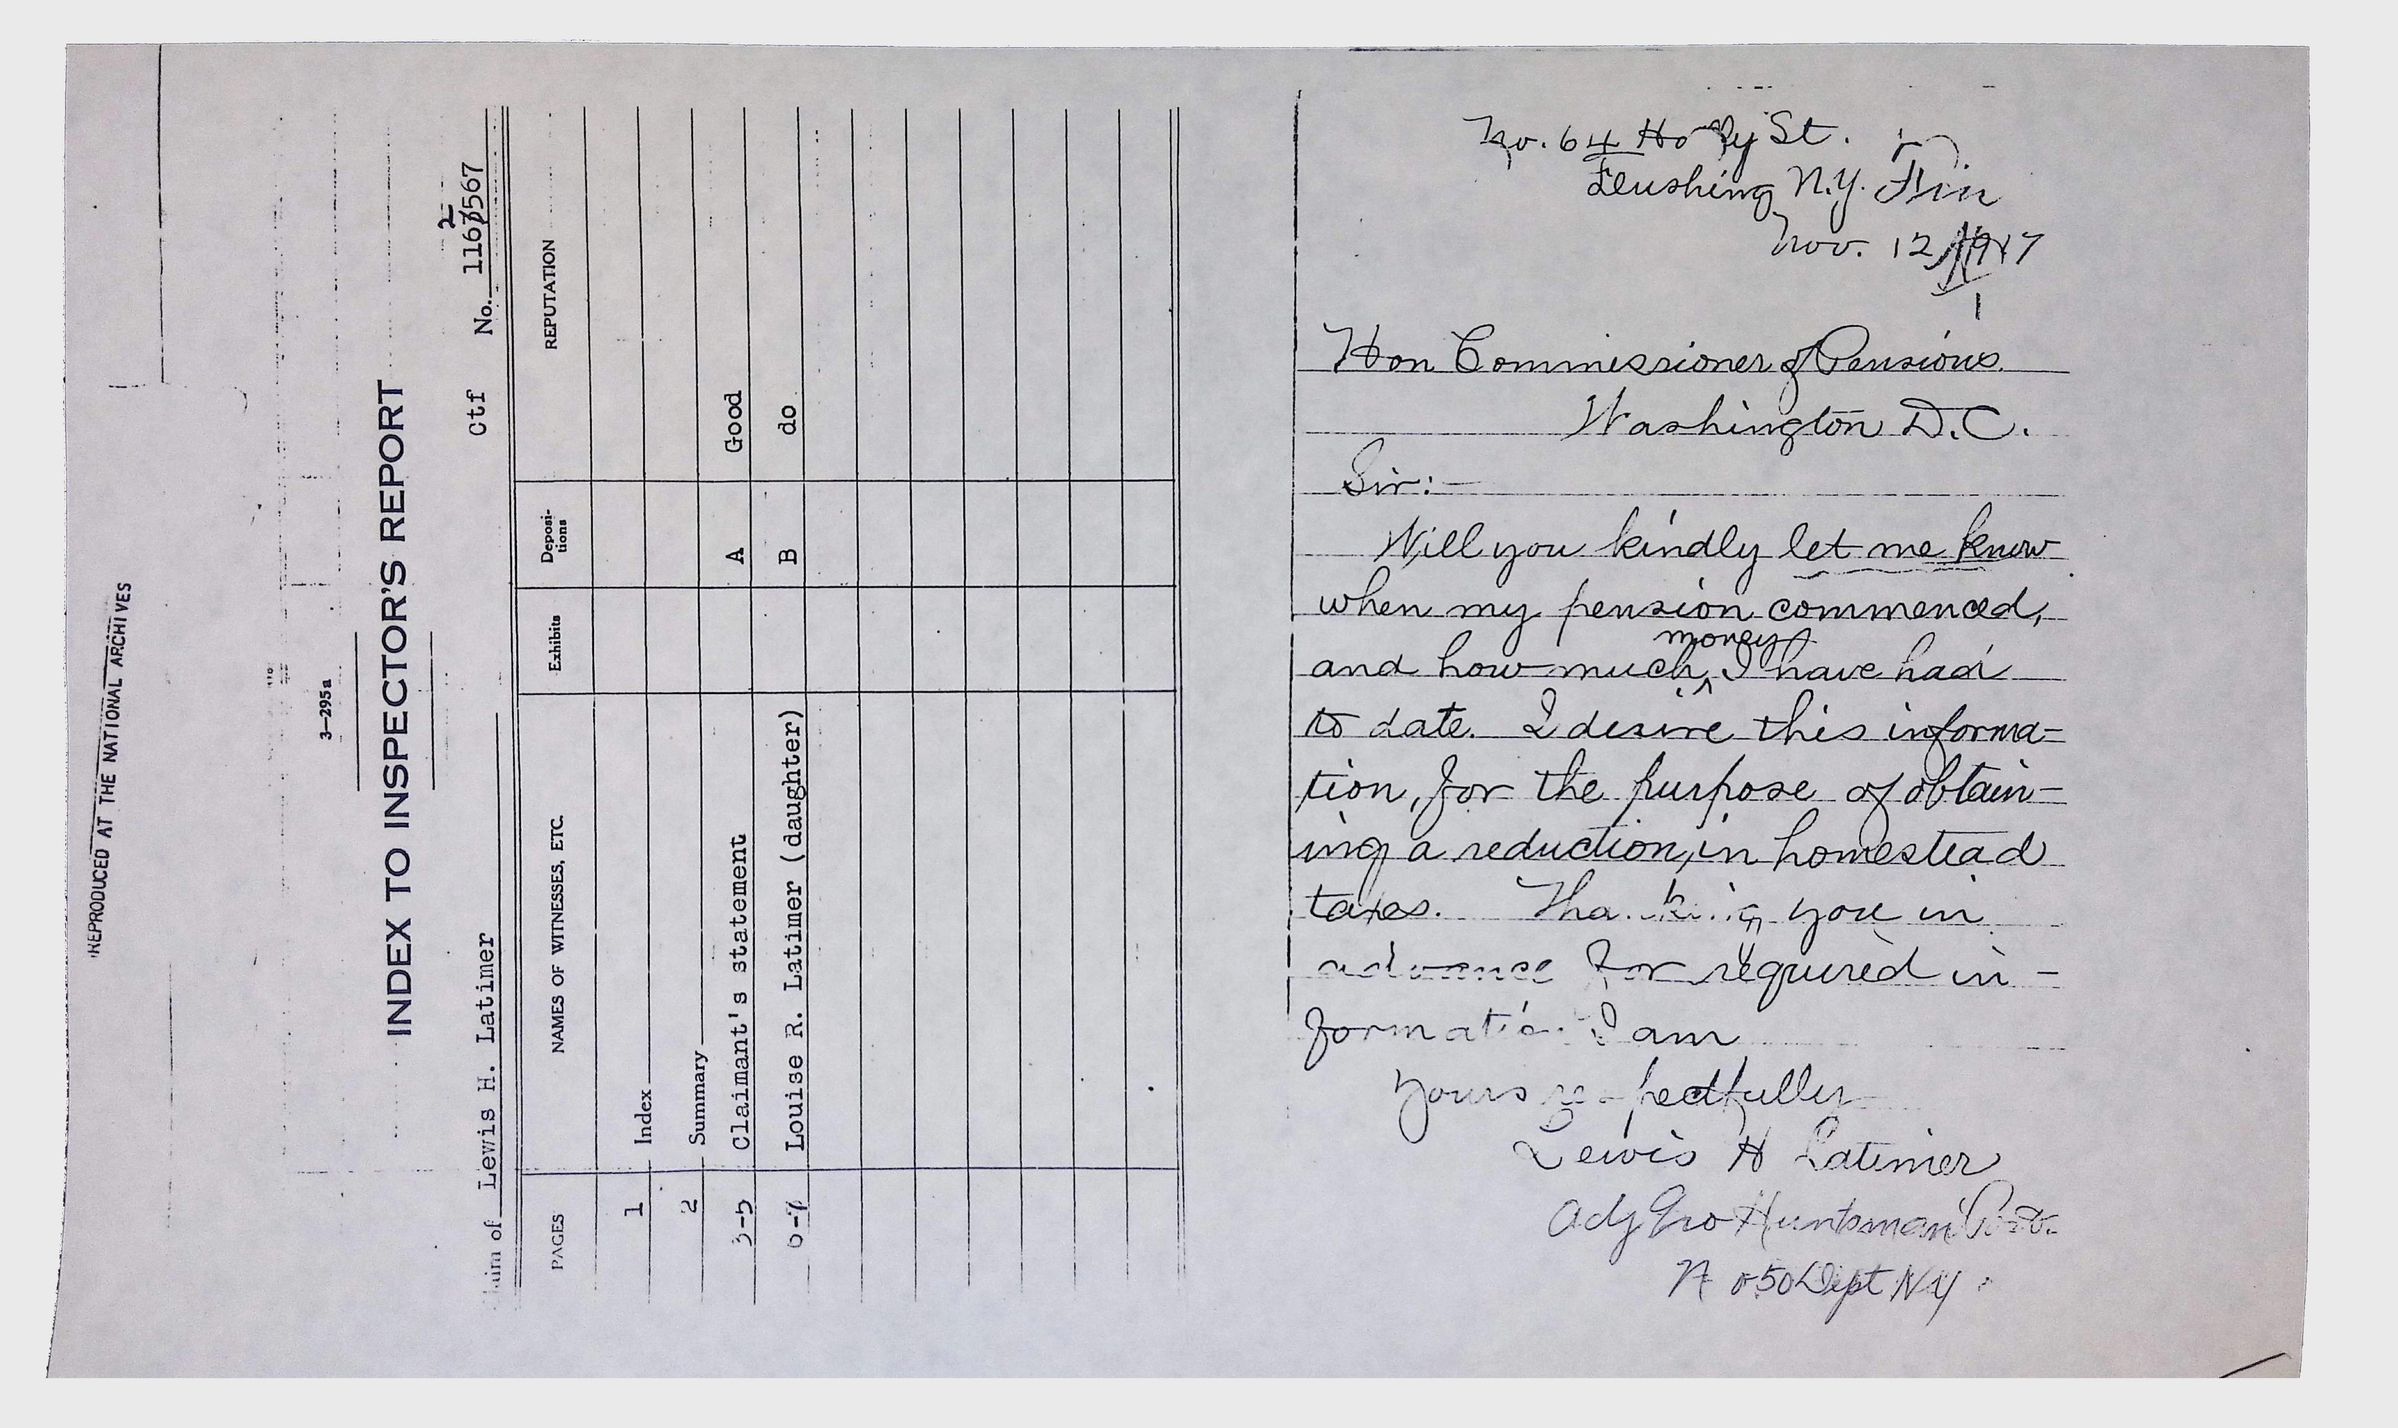 REPRODUCED AT THE NATIONAL ARCHIVES
3—295a
INDEX TO INSPECTOR'S REPORT
Ctf No. 1162567
of Lewis H. Latimer
PAGES NAMES OF WITNESSES, ETC. Exhibits Deposi-tions REPUTATION
1 Index
2 Summary
3-5 Claimant's statement A Good
6-7 Louise R. Latimer (daughter) B do
No. 64 Holly St.
Flushing N.Y. Fin
Nov. 12
Hon Commissioner of Pensions.
Washington D.C.
Sir:—
Will you kindly let me know
when my pension commenced,
and how much money I have had
to date. I desire this informa=
tion, for the purpose of obtain=
ing a reduction, in homestead
taxes. Thanking you in
advance for required in-
formation I am
Yours respectfully
Lewis H Latimer
Adj Geo Huntsman Post.
No 50 Dept NY